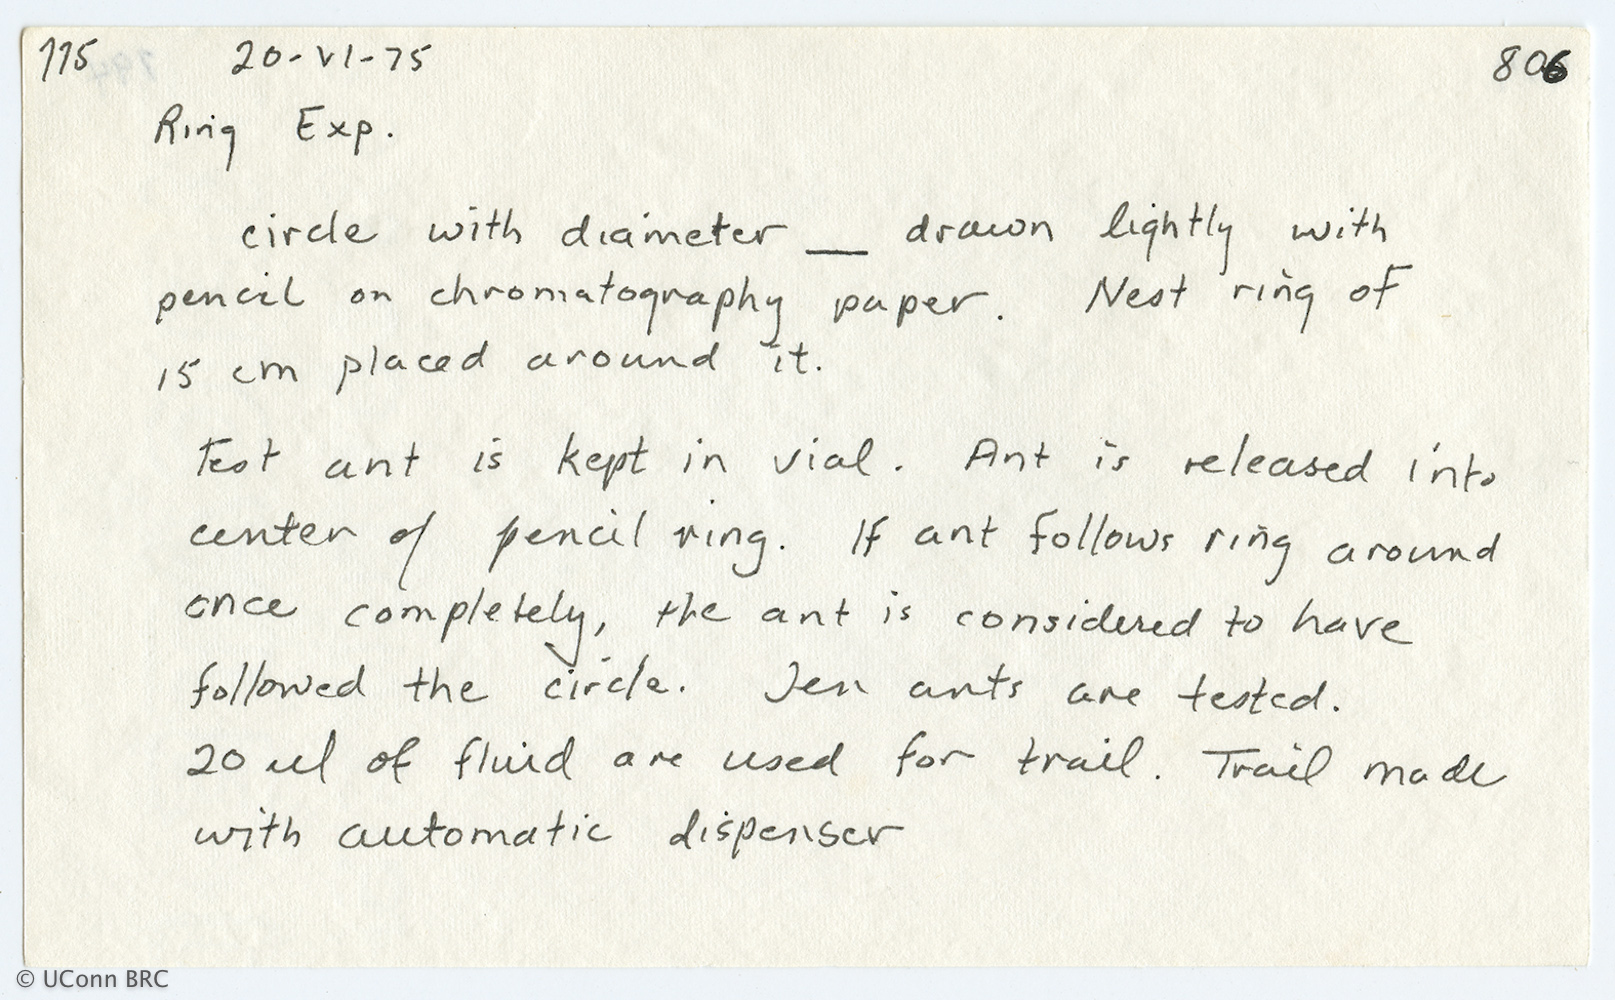 775 20-VI-75 806
Ring Exp.
circle with diameter __ drawn lightly with
pencil on chromatography paper. Nest ring of
15 cm placed around it.
Test ant is kept in vial. Ant is released into
center of pencil ring. If ant follows ring around
once completely, the ant is considered to have
followed the circle. Ten ants are tested.
20 ul of fluid are used for trail. Trail made
with automatic dispenser
© UConn BRC